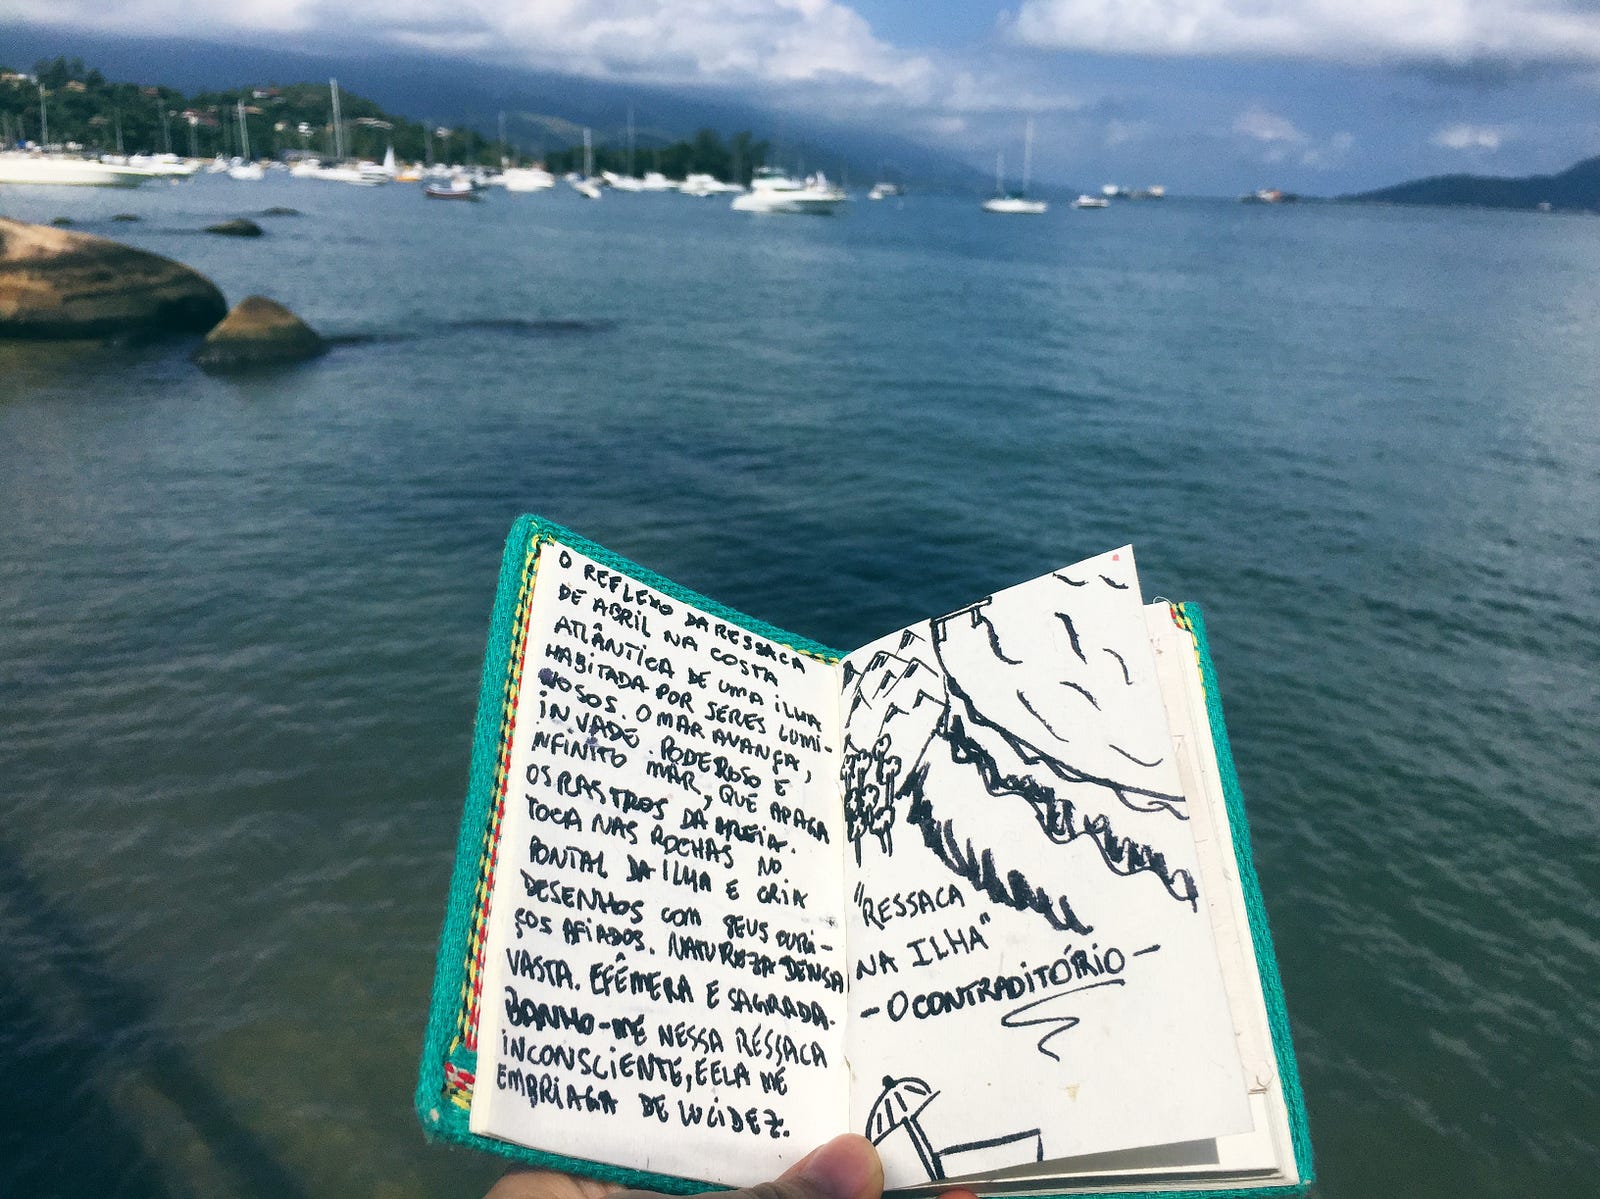 O REFLEXO DA RESSACA
DE ABRIL NA COSTA
ATLÂNTICA DE UMA ILHA
HABITADA POR SERES LUMI-
NOSOS. O MAR AVANÇA,
INVADE. PODEROSO E
INFINITO MAR, QUE APAGA
OS RASTROS DA AREIA.
TOCA NAS ROCHAS NO
PONTAL DA ILHA E CRIA
DESENHOS COM SEUS OURI-
ÇOS AFIADOS. NATUREZA DENSA
VASTA. EFÊMERA E SAGRADA.
BANHO-ME NESSA RESSACA
INCONSCIENTE, E ELA ME
EMBRIAGA DE LUCIDEZ.
"RESSACA
NA ILHA"
- O CONTRADITÓRIO -